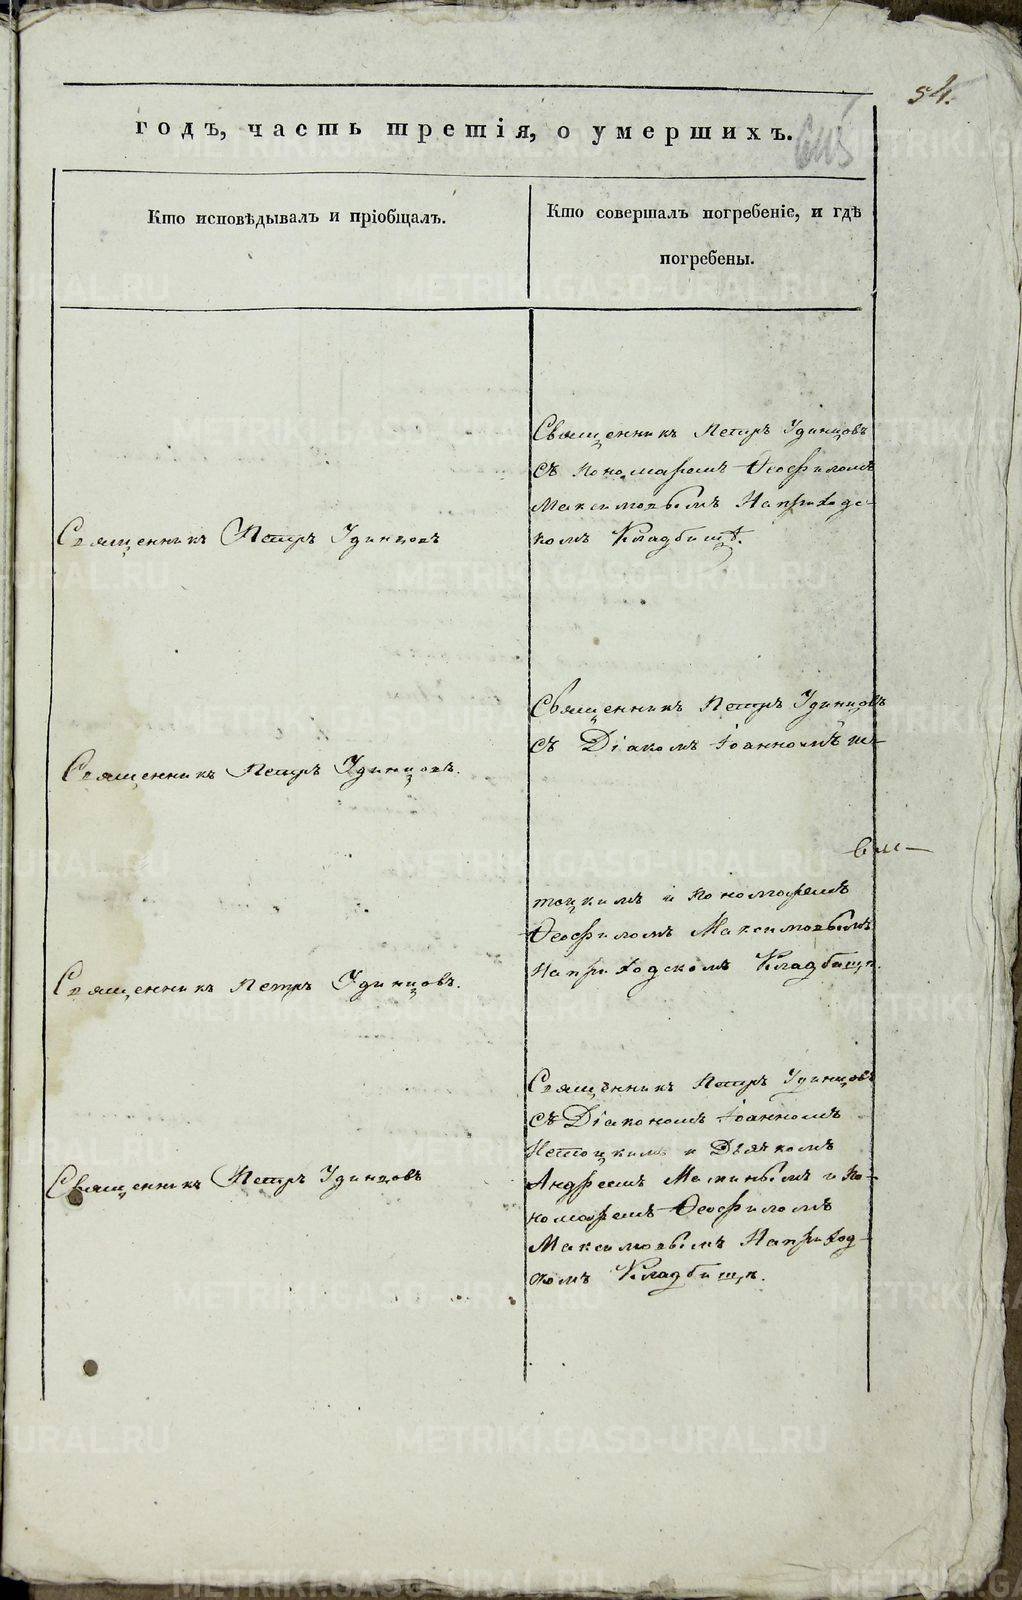 54.
годъ, часть третія, о умершихъ.
Кто исповѣдывалъ и пріобщалъ.
Кто совершалъ погребеніе, и гдѣ
погребены.
Священникъ Петръ Удинцовъ
съ пономаремъ Ѳеофиломъ
Максимовымъ На приходс-
комъ Кладбищѣ.
Священникъ Петръ Удинцовъ
Священникъ Петръ Удинцовъ
съ Діакомъ Іоанномъ
Священникъ Петръ Удинцовъ.
тоцкимъ и пономаремъ
Ѳеофиломъ Максимовымъ
На приходскомъ Кладбищѣ.
Священникъ Петръ Удинцовъ.
Священникъ Петръ Удинцовъ
съ Діакономъ Іоанномъ
и Дьячкомъ
Андреемъ и по-
номаремъ Ѳеофиломъ
Максимовымъ На приход-
комъ Кладбищѣ.
Священникъ Петръ Удинцовъ
METRIKI.GASO-URAL.RU